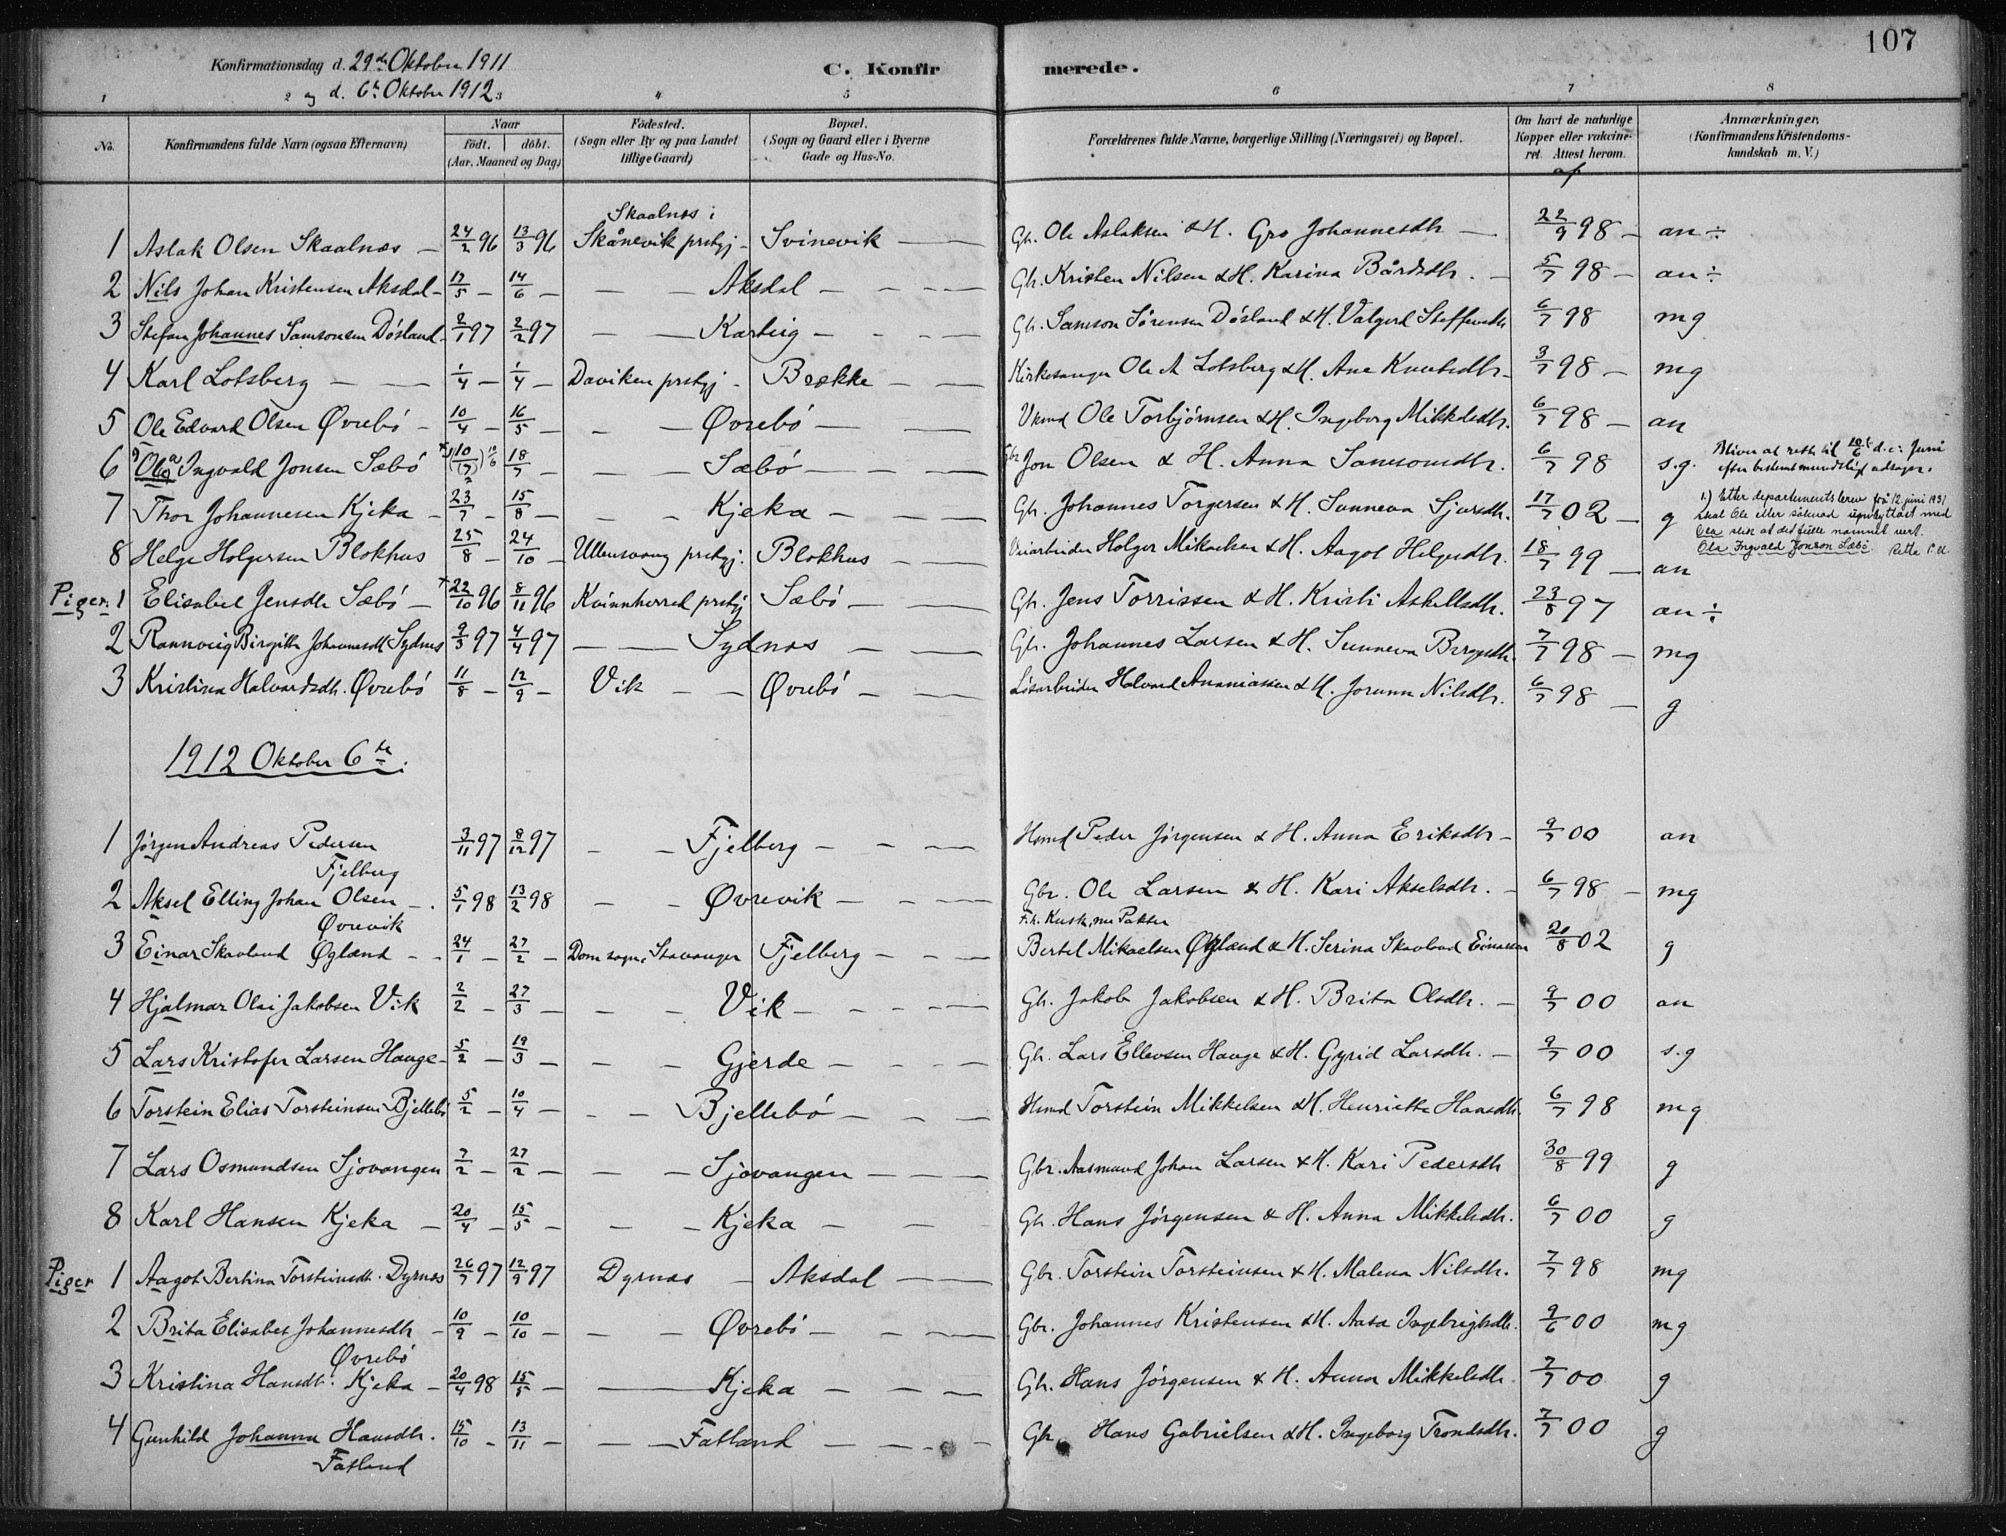 107
Konfirmationsdag d. 29de Oktober 1911
C. Konfirmerede.
og d. 6te Oktober 1912
1 2 3 4 5 6 7 8
No. Konfirmandens fulde Navn (ogsaa Efternavn) Naar født, døbt. (Aar, Maaned og Dag) Fødested. (Sogn eller By og paa Landet tillige Gaard) Bopæl. (Sogn og Gaard eller i Byerne Gade og Hus-No. Forældrenes fulde Navne, borgerlige Stilling (Næringsvei) og Bopæl. Om havt de naturlige Kopper eller vakcineret. Attest herom. Anmærkninger, (Konfirmandens Kristendomskundskab m. V.)
1 Aslak Olsen Skaalnæs — 24/2 96 13/3 96 Skaalnæs i Skånevik prstgj — Svinevik — Gbr. Ole Aslaksen & H. Gro Johannesdtr — 22/9 98 — an ÷
2 Nils Johan Kristensen Aksdal — 13/5 — 14/6 — — — Aksdal — Gbr. Kristen Nilsen & H. Karina Bårdsdtr. — 5/7 98 — an ÷
3 Stefan Johannes Samsonsen Døsland — 2/1 97 2/2 97 — — Karteig — Gbr. Samson Sørensen Døsland & H. Valgerd Steffensdtr 6/7 98 mg
4 Karl Lotsberg — 1/4 — 1/4 — Daviken prstgj — Brekke — Kirkesanger Ole A Lotsberg & H. Ane Knutsdtr — 3/7 98 — mg
5 Ole Edvard Olsen Øvrebö — 10/4 — 16/5 — — — Øvrebö — Ole Torbjørnsen & H. Ingeborg Mikkelsdtr. 6/7 98 — an
6 Ola Ingvald Jonsen Sæbö (10/7) 10/6 18/7 — — — Sæbö — Gbr Jon Olsen & H. Anna Samsonsdtr. 6/7 98 s.g. Bliver at rette til 10/6 d.e: Juni
efter bestemt mundtlig udsagn.
7 Thor Johannesen Kjeka — 23/7 — 15/8 — — — Kjeka — Gbr. Johannes Torgersen & H. Sunneva Sjursdtr. 17/7 02 — g 1.) Etter departementsbrev frå 12. juni 1931
skal Ole etter søknad ugvbyttast med
Ola slik at det fulle namnet vert
Ola Ingvald Jonson Sæbö.
8 Helge Holgersen Blokhus 25/8 — 24/10 — Ullensvang prstgj. Blokhus — Veiarbeider Holger Mikaelsen & H. Aagot Helgesdtr. 18/7 99 — an
Piger. 1 Elisabet Jensdtr Sæbö — 22/10 96 8/11 96 Kvinnherred prstgj Sæbö — Gbr. Jens Torrissen & H. Kristi Askellsdtr. 23/8 97 an ÷
2 Rannveig Birgitte Johannesdtr Sydnes 9/3 97 4/4 97 — — Sydnæs — Gbr. Johannes Larsen & H. Sunneva Bergesdtr. 7/7 98 — mg
3 Kristina Halvardsdtr. Øvrebö 11/8 — 12/9 — Vik — Øvrebö — Løsarbeider Halvard Ananiassen & H. Jorunn Nilsdtr. 6/7 98 — g
1912 Oktober 6te.
1 Jørgen Andreas Pedersen
Fjelberg 3/11 97 8/12 97 — — Fjelberg — Hmd Peder Jørgensen & H. Anna Eriksdtr — 9/7 00 an
2 Aksel Elling Johan Olsen
Øvrevik 5/1 98 13/2 98 — — Øvrevik — Gbr. Ole Larsen & H. Kari Akselsdtr. — 6/7 98 — mg
3 Einar Skavland Øgland — 24/1 — 27/2 — Dom sogn, Stavanger Fjelberg — F.h. Kusk, nu Pakker
Bertel Mikaelsen Øgland & H. Serina Skavland Einarsen 20/8 02 g
4 Hjalmar Olai Jakobsen Vik 2/2 — 27/3 — — — Vik — Gbr. Jakob Jakobsen & H. Brita Olsdtr. — 9/7 00 an
5 Lars Kristofer Larsen Hauge — 5/2 — 19/3 — — Gjerde — Gbr. Lars Ellevsen Hauge & H. Gyrid Larsdtr. — 9/7 00 s.g
6 Torstein Elias Torsteinsen Bjellebö 5/2 — 10/4 — — — Bjellebö — Hmd Torstein Mikkelsen & H. Henriette Hansdtr. 6/7 98 mg
7 Lars Osmundsen Sjovangen 7/2 — 27/2 — — — Sjovangen — Gbr. Aasmund Johan Larsen & H. Kari Pedersdtr 30/8 99 g
8 Karl Hansen Kjeka — 20/4 — 15/5 — — — Kjeka — Gbr. Hans Jørgensen & H. Anna Mikkelsdtr. 6/7 00 g
Piger 1 Aagot Bertina Torsteinsdtr. Dyrnæs 26/7 97 12/9 97 Dyrnæs — Aksdal — Gbr. Torstein Torsteinsen & H. Malena Nilsdtr. 7/7 98 mg
2 Brita Elisabet Johannesdtr —
Øvrebö 10/9 — 10/10 — — — Øvrebö — Gbr. Johannes Kristensen & H. Aasa Ingebrigtsdtr. 9/6 00 mg
3 Kristina Hansdtr. Kjeka — 20/4 98 15/5 — — Kjeka — Gbr. Hans Jørgensen & H. Anna Mikkelsdtr. 7/7 00 g
4 Gunhild Johanna Hansdtr.
Fatland 15/10 — 13/11 — — — Fatland — Gbr. Hans Gabrielsen & H. Ingeborg Trondsdtr. 7/7 00 g